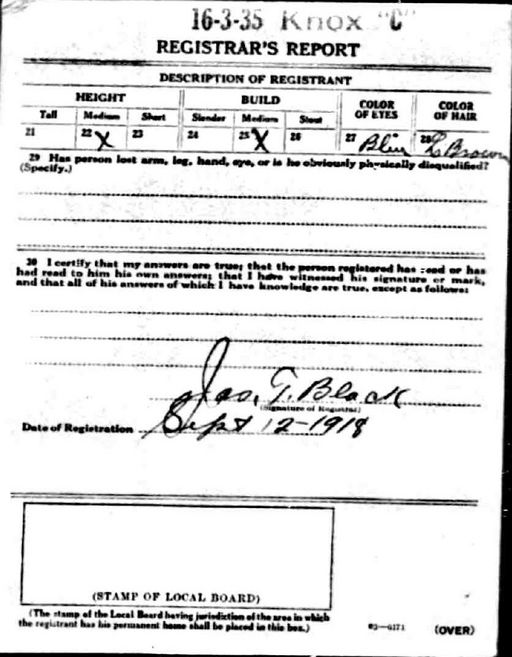 16-3-35 Knox "C"
REGISTRAR'S REPORT
DESCRIPTION OF REGISTRANT
HEIGHT BUILD COLOR OF EYES COLOR OF HAIR
Tall Medium Short Slender Medium Stout
21 22 X 23 24 25 X 26 27 Blue 28 L Brown
29 Has person lost arm, leg, hand, eye, or is he obviously physically disqualified?
(Specify.)
30 I certify that my answers are true; that the person registered has read or has
had read to him his own answers; that I have witnessed his signature or mark,
and that all of his answers of which I have knowledge are true, except as follows:
Jas. T. Black
(Signature of Registrar)
Date of Registration Sept 12-1918
(STAMP OF LOCAL BOARD)
(The stamp of the Local Board having jurisdiction of the area in which
the registrant has his permanent home shall be placed in this box.)
03—6171 (OVER)